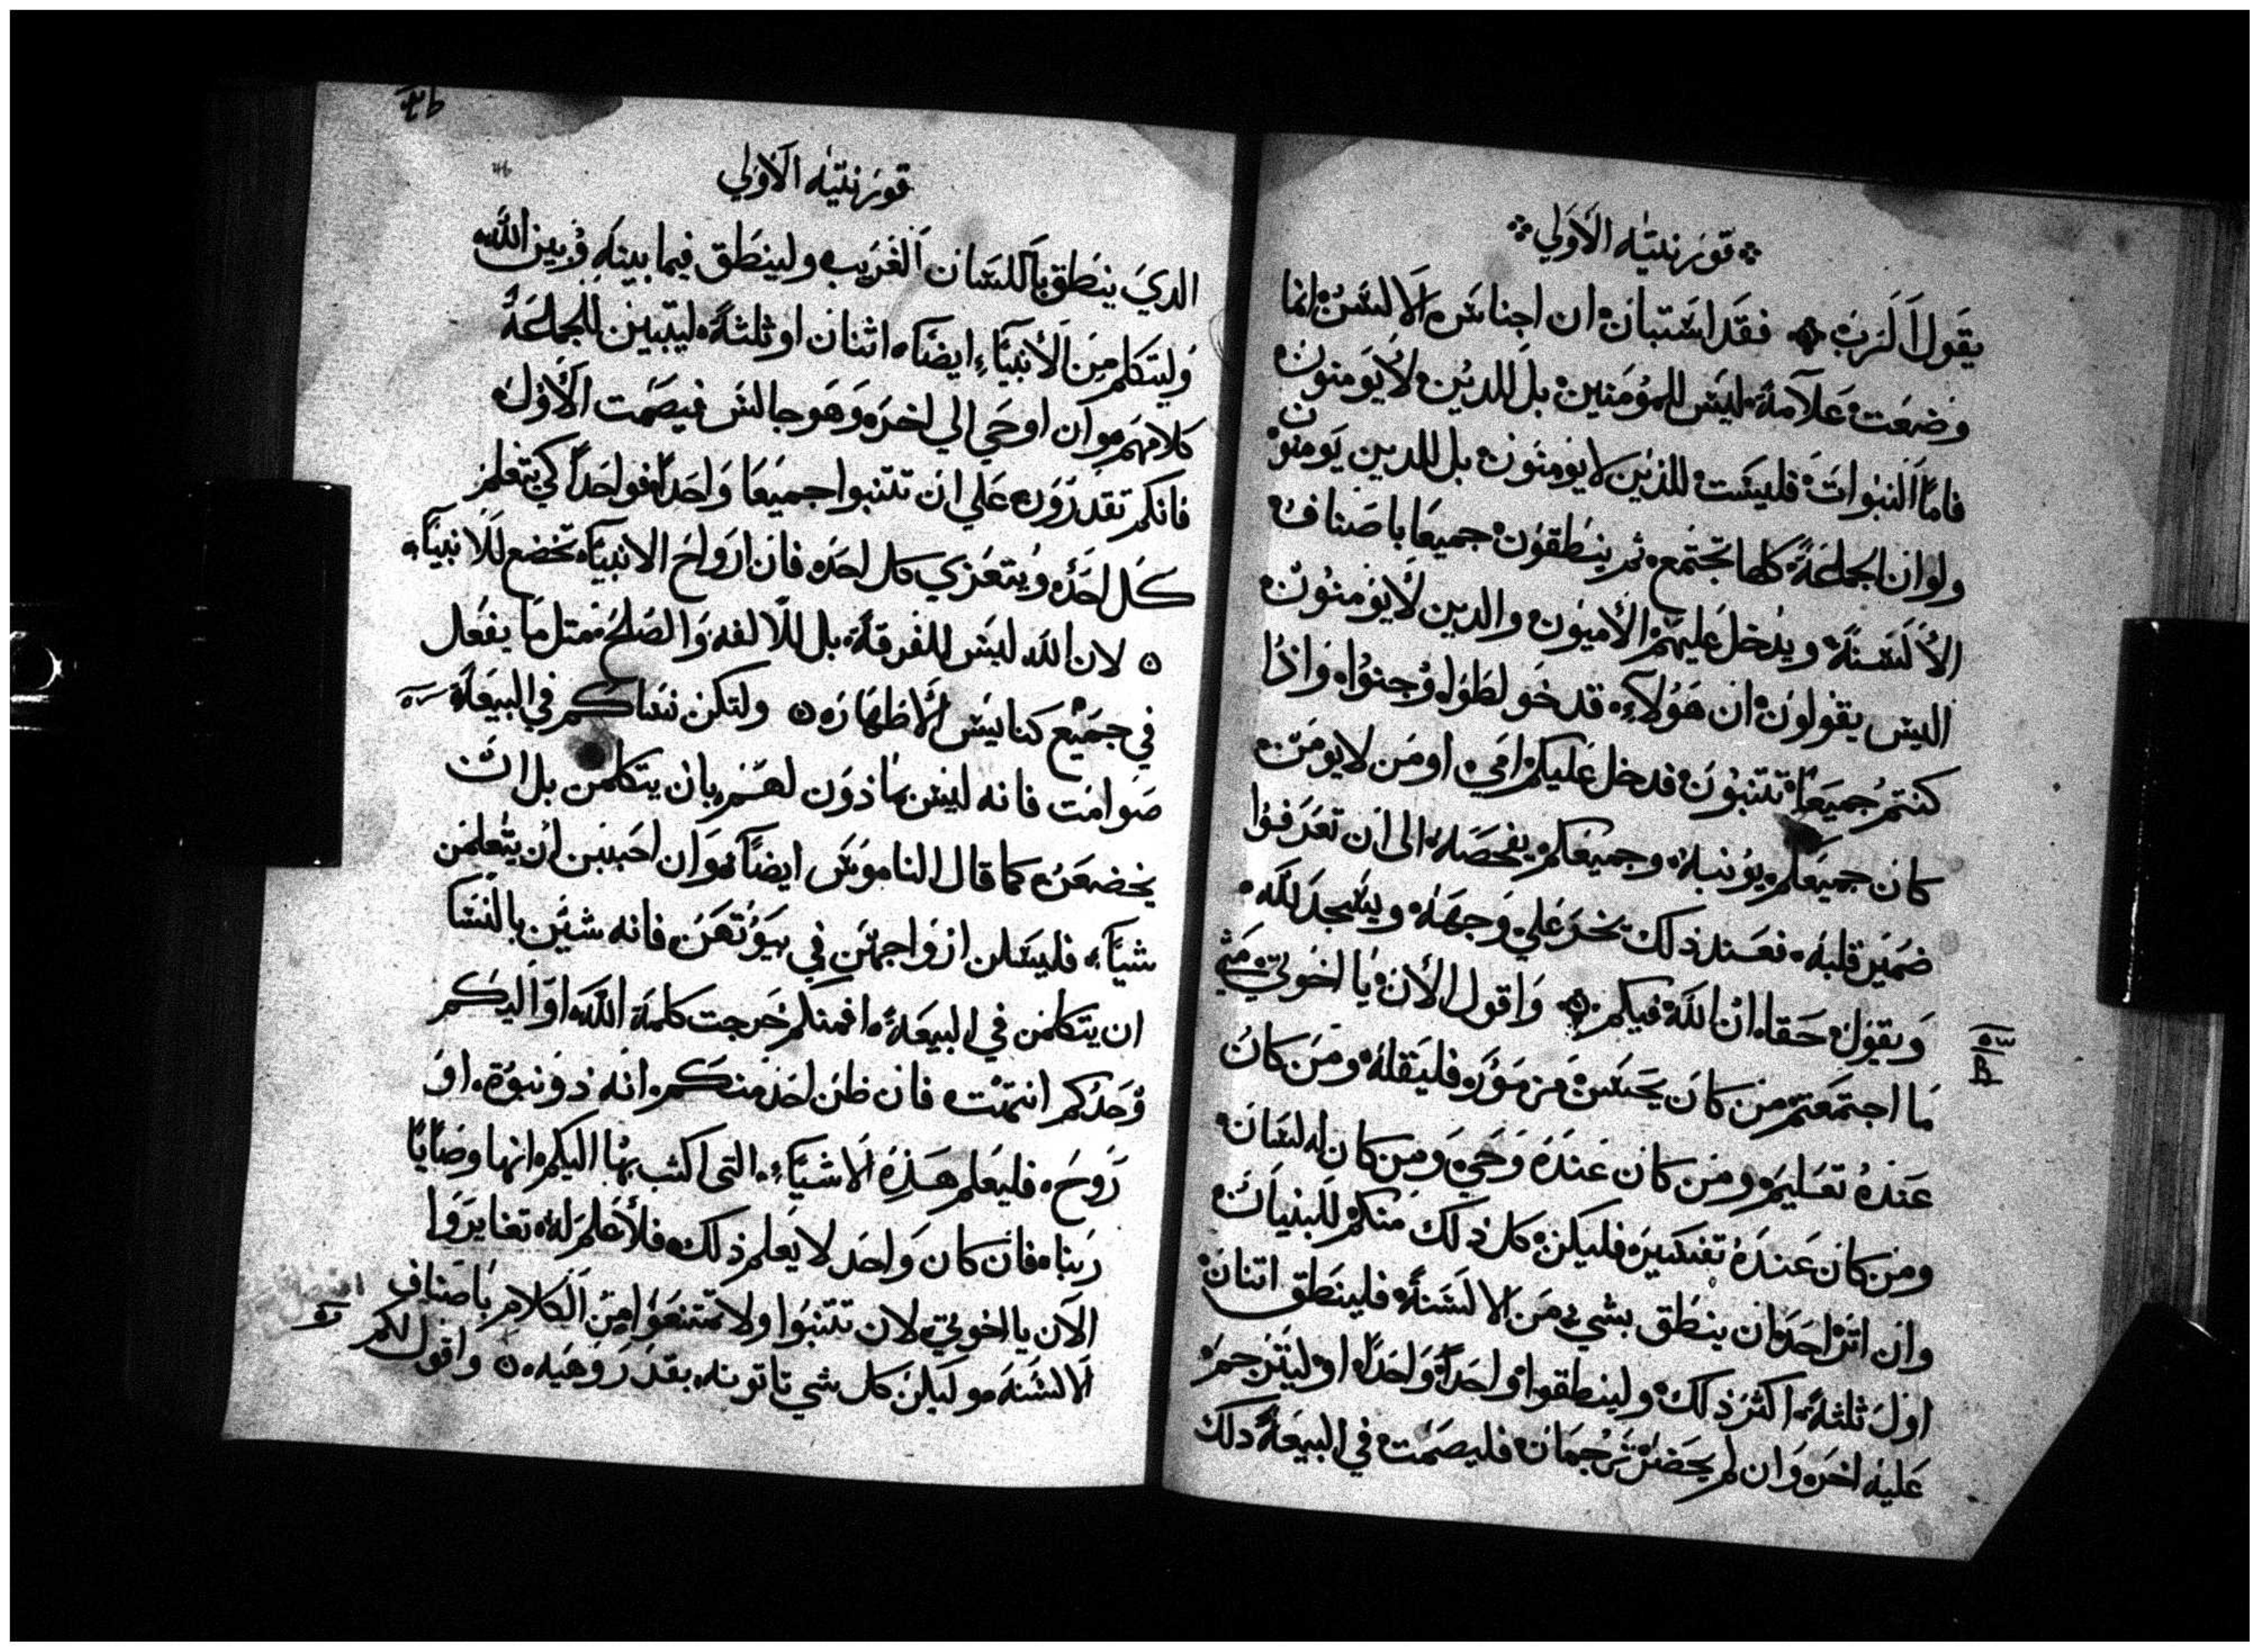 قورنتيه الاولي
يقول الرب فقد استبان ان اجناس الالسن انما
وضعت علامة ليس للمومنين بل للدين لا يومنون
فاما النبوات فليست للذين لا يومنون بل للدين يومنون
ولو ان الجماعة كلها تجتمع ثم ينطقون جميعا باصناف
الالسنة ويدخل عليهم الاميون والدين لا يومنون
اليس يقولون ان هولاء قد خولطوا وجنوا واذا
كنتم جميعا تتنبون فدخل عليكم امي او من لا يومن
كان جميعكم يونبه وجميعكم يفحصه الى ان تعرفوا
ضمير قلبه فعند ذلك يخر علي وجهه ويسجد لله
ويقول حقا ان الله فيكم واقول الان يا اخوتي متي
ما اجتمعتم من كان يحسن مزمور فليقله ومن كان
عنده تعليم ومن كان عنده وحي ومن كان له لسان
ومن كان عنده تفسير فليكن كل ذلك منكم للبنيان
وان اثر احد ان ينطق بشي من الالسنة فلينطق اتنان
اول ثلثة اكثر ذلك ولينطقوا واحدا واحدا او ليترجم
عليه اخر وان لم يحضر ترجمان فليصمت في البيعة دلك
قورنتيه الاولي
الدي ينطق باللسان الغريب ولينطق فيما بينه وبين الله
وليتكلم من الانبياء ايضا اثنان او ثلثة ليتبين للجماعة
كلامهم وان اوحي الي اخر وهو جالس فيصمت الاول
فانكم تقدرون علي ان تتنبوا جميعا واحدا فواحدا كي يتعلم
كل احد ويتعزي كل احد فان ارواح الانبيا تخضع للانبيا
لان الله ليس للفرقة بل للالفه والصلح متل ما يفعل
في جميع كنايس الاظهار ولتكن نساكم في البيعة
صوامت فانه ليس ماذون لهن بان يتكلمن بل ان
يخضعن كما قال الناموس ايضا وان احببن ان يتعلمن
شيا فليسلن ازواجهن في بيوتهن فانه شين بالنسا
ان يتكلمن في البيعة افمنكم خرجت كلمة الله او اليكم
وحدكم انتهت فان ظن احد منكم انه ذو نبوة او
روح فليعلم هذه الاشياء التى اكتب بها اليكم انها وصايا
ربنا فان كان واحد لا يعلم ذلك فلا علم له تغايروا
الان يا اخوتي لان تتنبوا ولا تمتنعوا من الكلام باصناف
الالسنه وليكن كل شي تاتونه بقدر وهيه واقول لكم